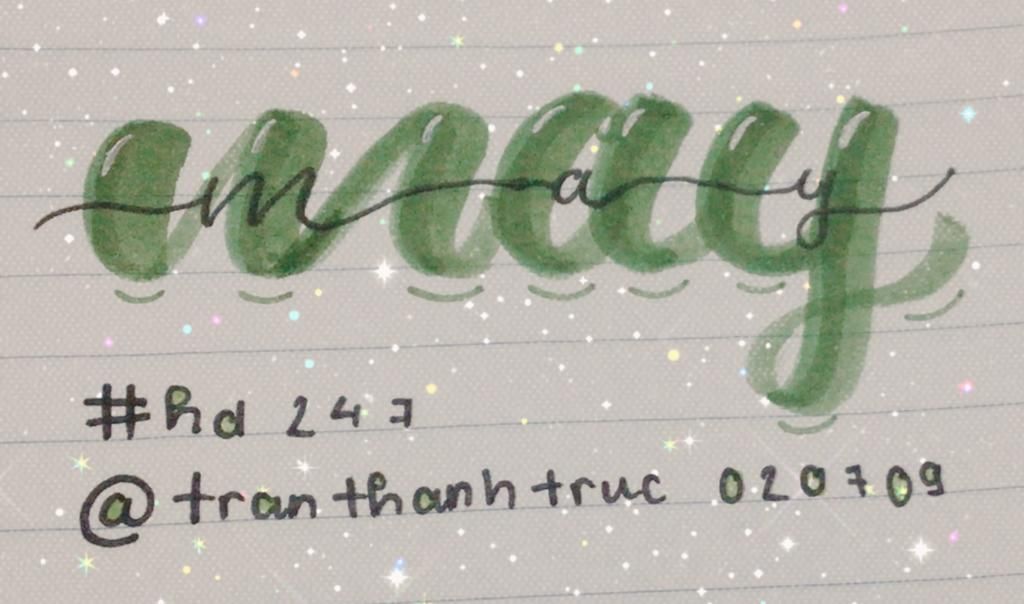 may
may
#hd 247
@tranthanhtruc 020709